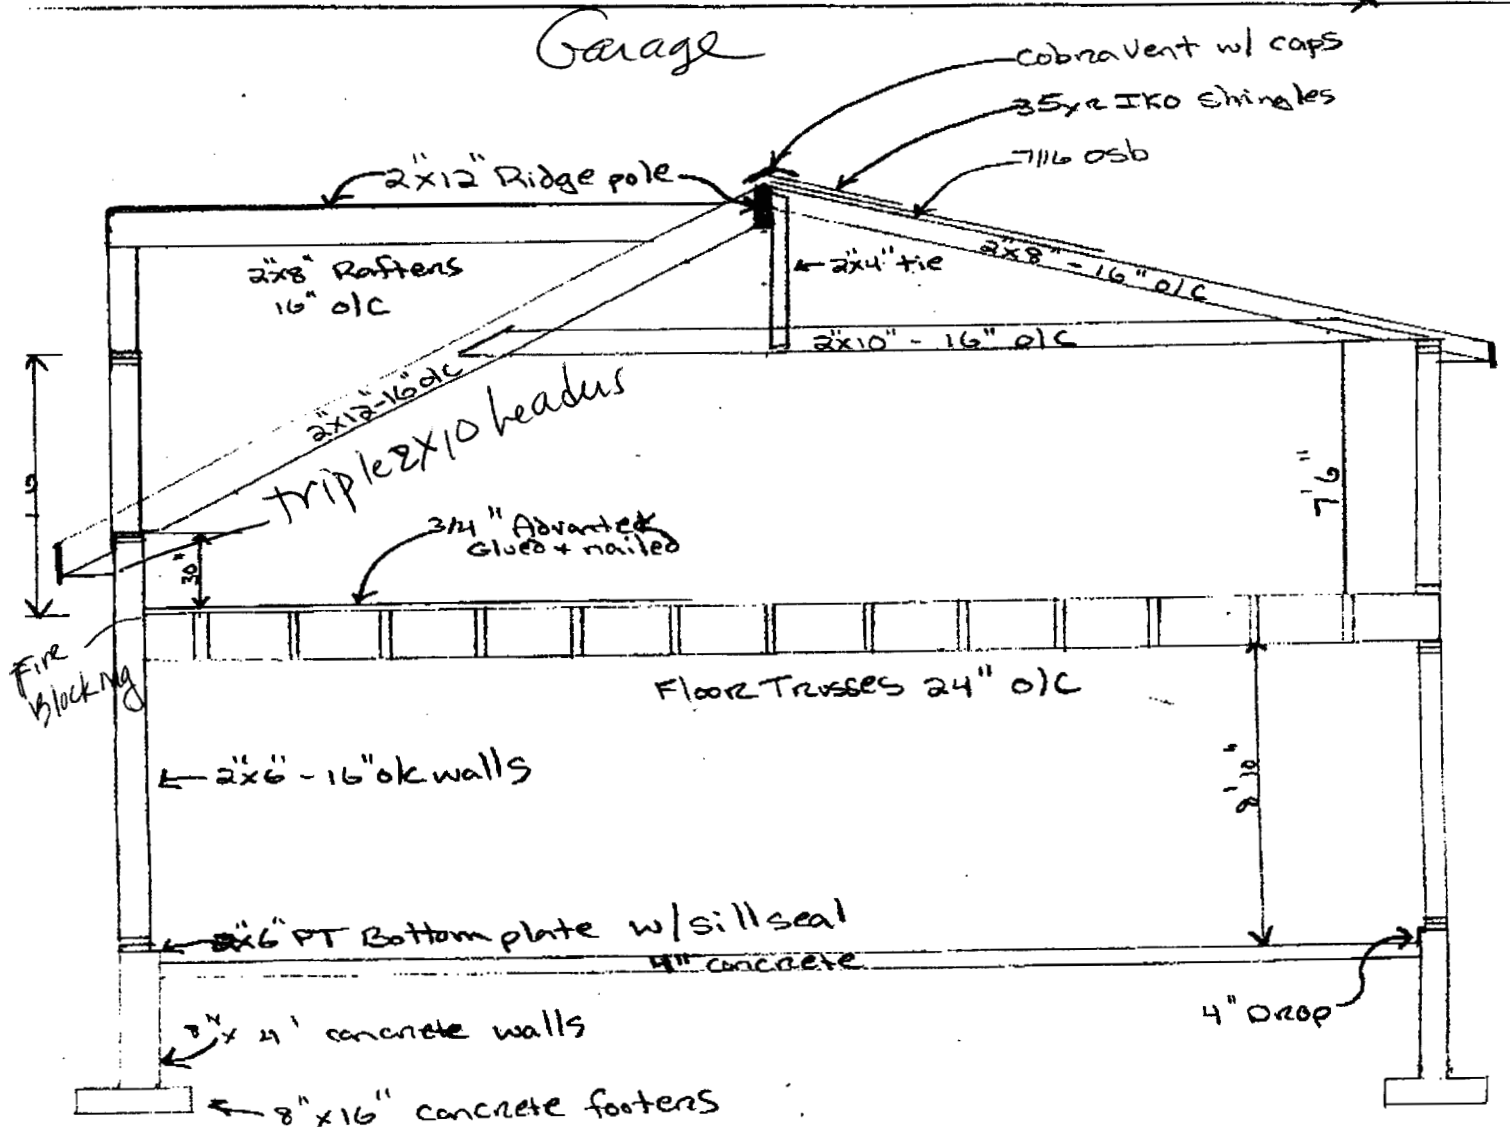 Garage
Cobra Vent w/ caps
35yr IKO Shingles
7/16 osb
2"x12" Ridge pole
2"x8" Rafters
16" o/c
2"x4" tie
2"x8" - 16" o/c
2"x10" - 16" o/c
2"x12"-16" o/c
triple 2x10 headers
7'6"
3/4" Advantek
Glued + nailed
30"
Fire
Blocking
Floor Trusses 24" o/c
2"x6" - 16" o/c walls
9'10"
2"x6" PT Bottom plate w/ sill seal
4" concrete
4" Drop
8" x 4' concrete walls
8"x16" concrete footers